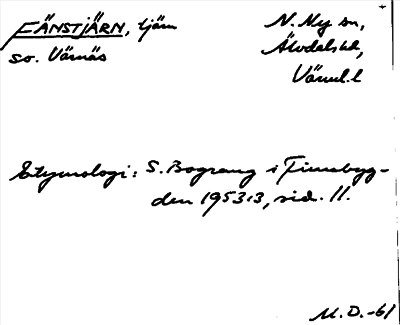 FÄNSTJÄRN, tjärn
N. Ny sn,
so. Värnäs
Älvdals hd,
Värml. l
Etymologi: S. Bograng i Finnebyg-
den 1953:3, sid. 11.
M. D. -61